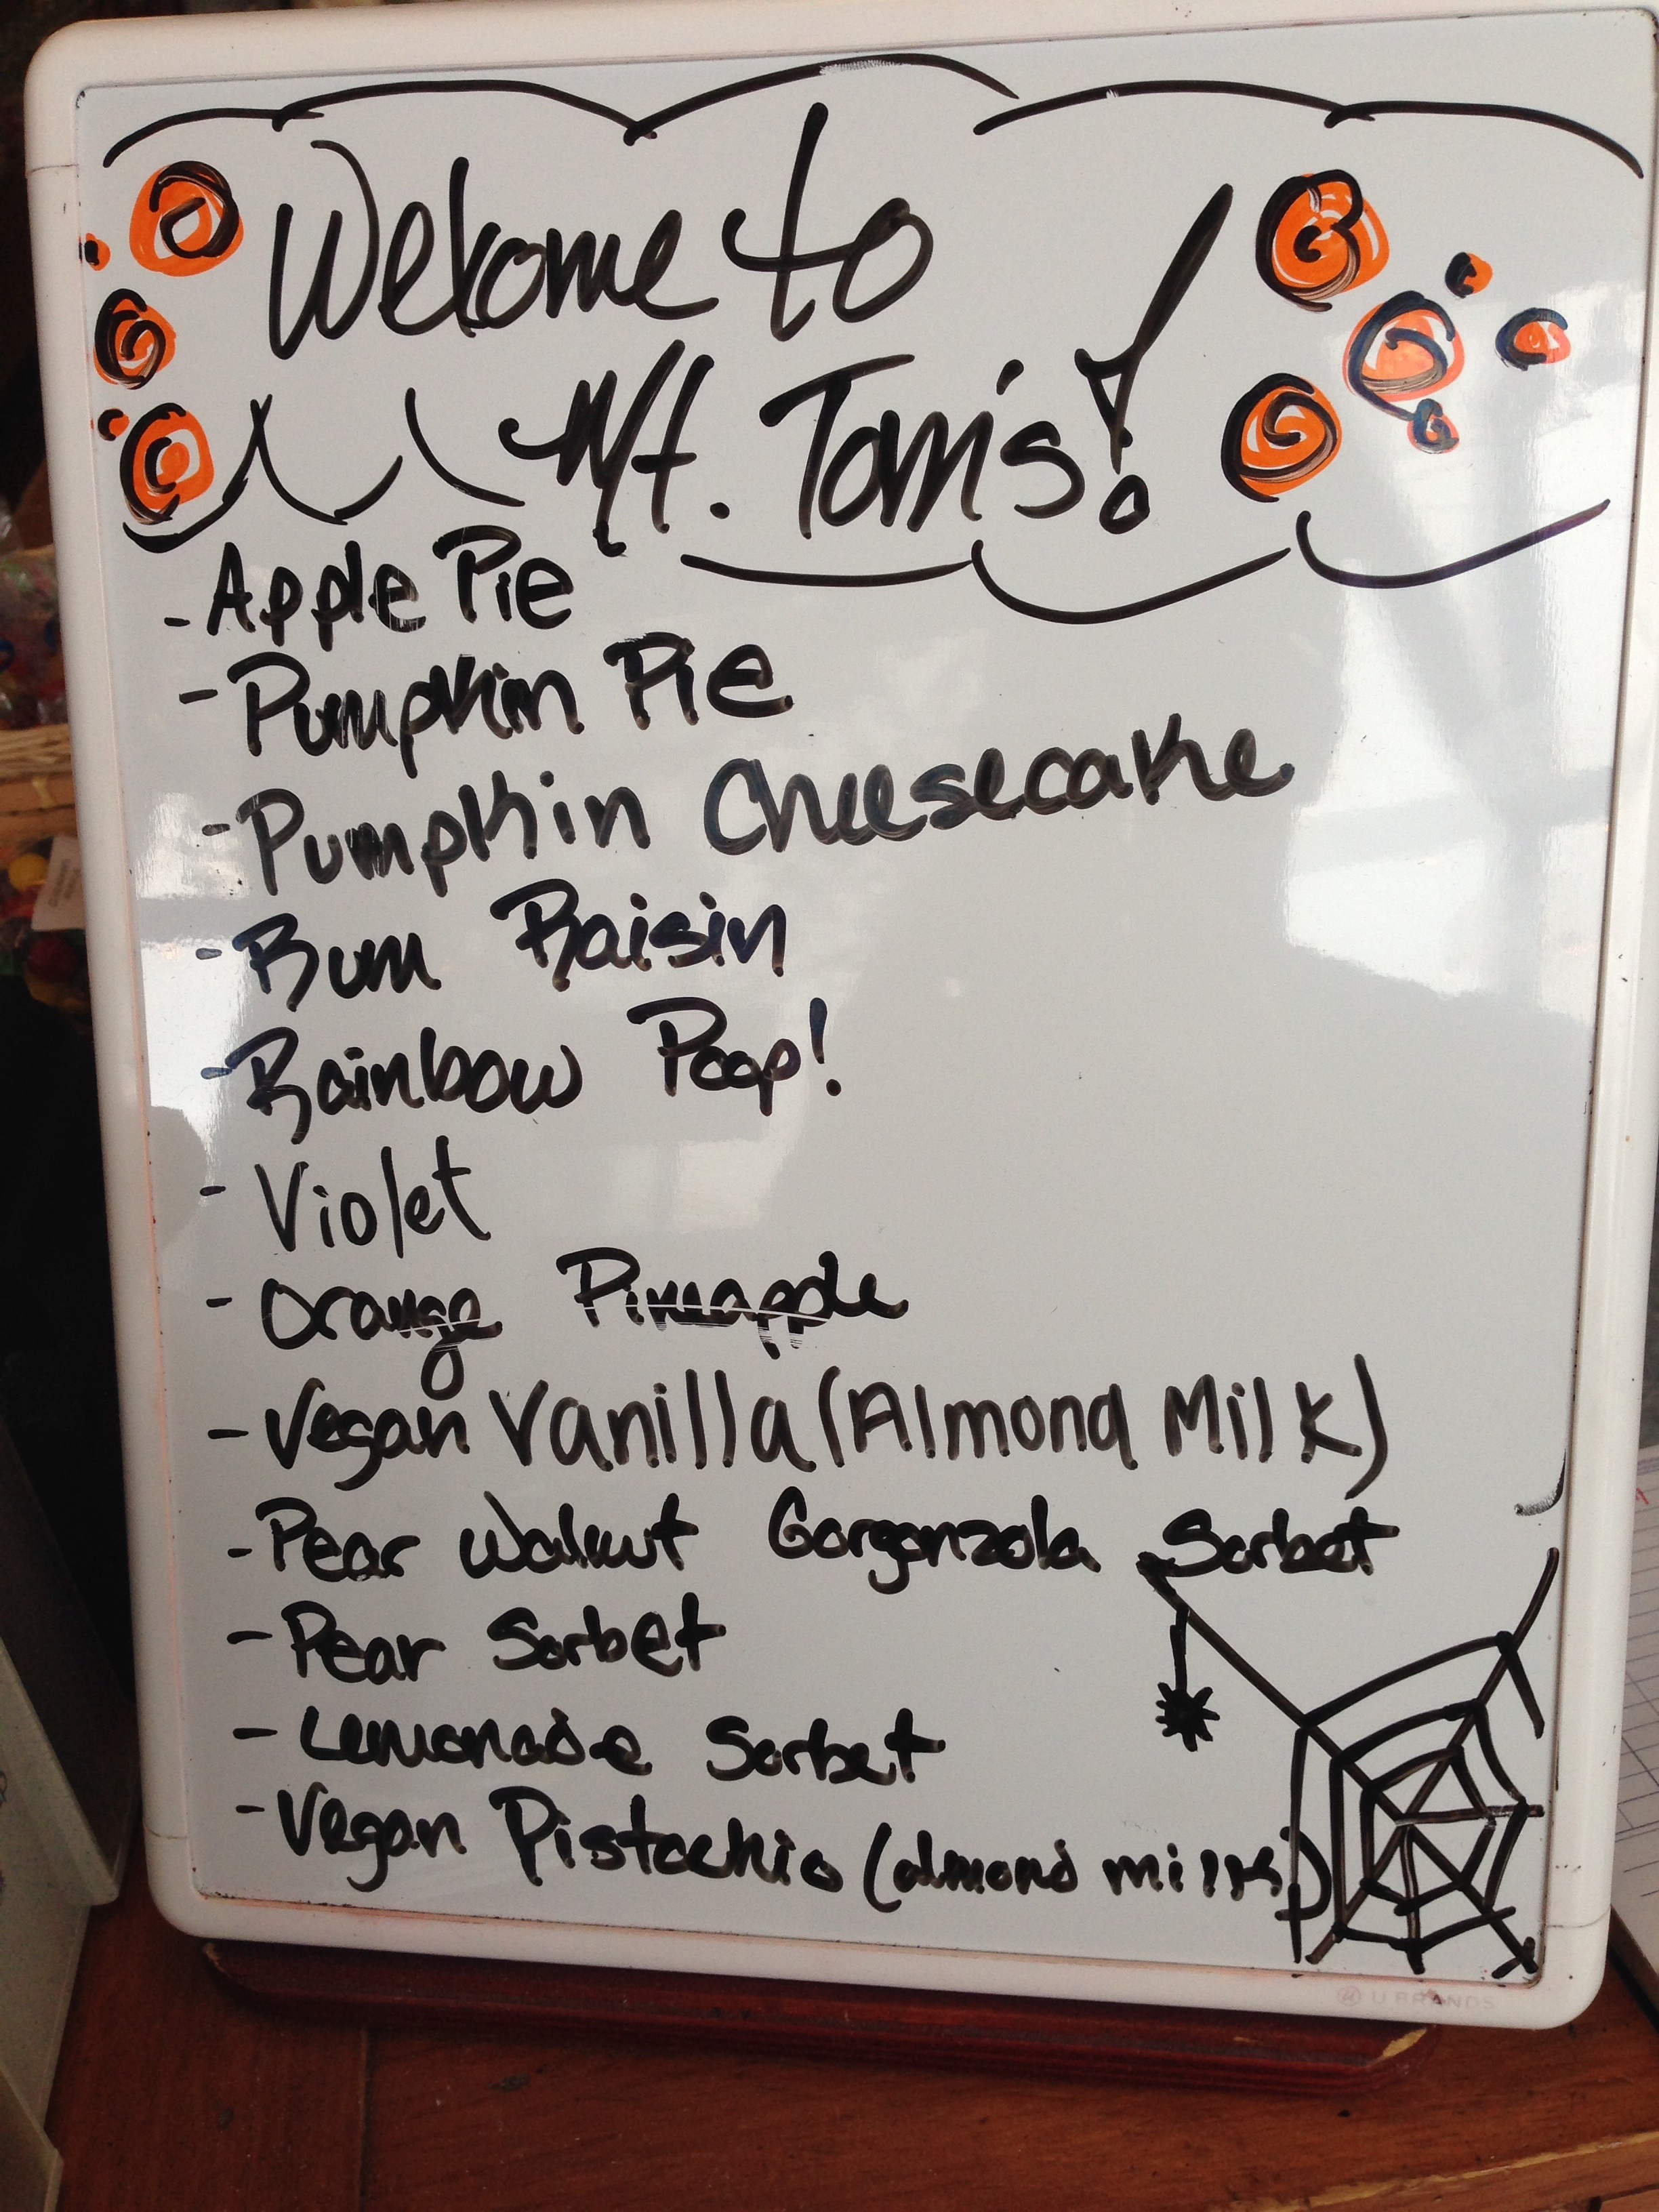 Welcome to
Mt. Tom's!
- Apple Pie
- Pumpkin Pie
- Pumpkin Cheesecake
- Rum Raisin
- Rainbow Poop!
- Violet
- Orange Pineapple
- Vegan Vanilla (Almond Milk)
- Pear Walnut Gorgonzola Sorbet
- Pear Sorbet
- Lemonade Sorbet
- Vegan Pistachio (almond milk)
U BRANDS